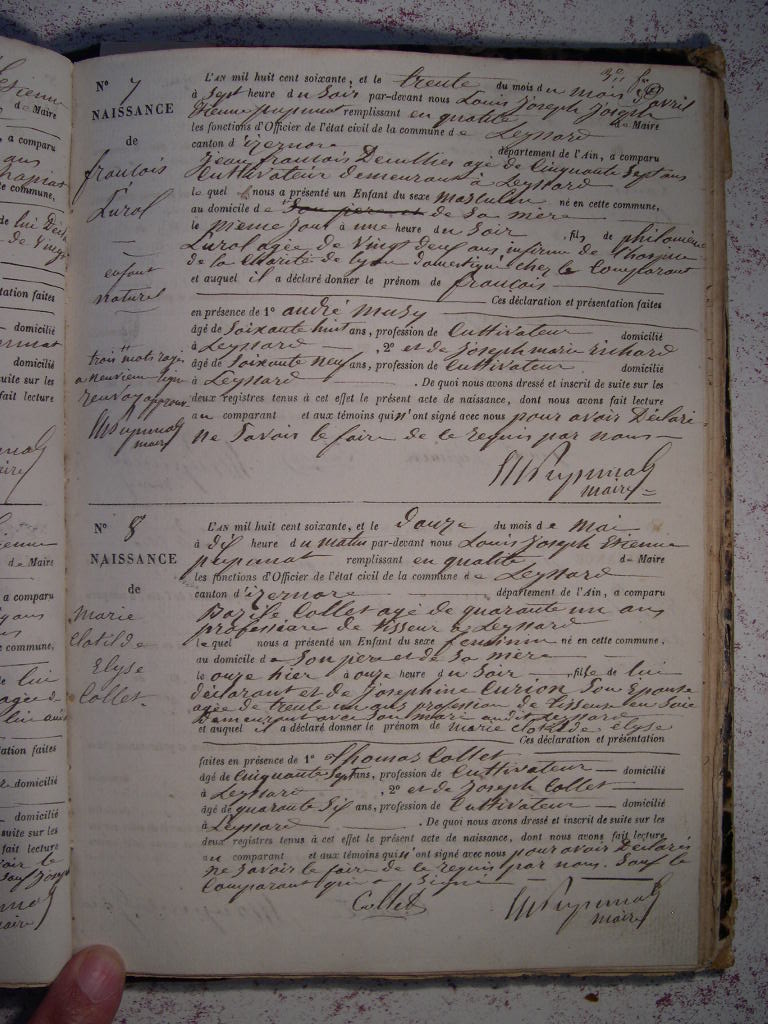 N° 7
NAISSANCE
de
françois
Lurol
enfant
naturel
trois mots rayés
a neuvieme ligne
renvoy approuvé
maire
L'AN mil huit cent soixante, et le trente du mois du mois d'avril
à Sept heure du Soir par-devant nous Louis Joseph Joseph
Etienne remplissant en qualité de Maire
les fonctions d'Officier de l'état civil de la commune de Leyssard
canton d'izernore département de l'Ain, a comparu
Jean françois agé de Cinquante Sept ans
Cultivateur demeurant à Leyssard
lequel nous a présenté un Enfant du sexe masculin né en cette commune,
au domicile de Son pere et de Sa mère
le jour à une heure du Soir, fils de philomène
Lurol agée de Vingt deuf ans infirme de l'hospice
de la Charité de lyon domestique chez le Comparant
et auquel il a déclaré donner le prénom de françois
Ces déclaration et présentation faites
en présence de 1° andré Musy
âgé de Soixante huit ans, profession de Cultivateur domicilié
à Leyssard, 2° et de Joseph marie richard
âgé de Soixante neuf ans, profession de Cultivateur domicilié
à Leyssard. De quoi nous avons dressé et inscrit de suite sur les
deux registres tenus à cet effet le présent acte de naissance, dont nous avons fait lecture
au comparant et aux témoins qui n'ont signé avec nous pour avoir Déclaré
ne Savoir le faire de le requis par nous
maire
N° 8
NAISSANCE
de
Marie
Clotilde
Elyse
Collet
L'AN mil huit cent soixante, et le douze du mois de Mai
à dif heure du matin par-devant nous Louis Joseph Etienne
remplissant en qualité de Maire
les fonctions d'Officier de l'état civil de la commune de Leyssard
canton d'izernore département de l'Ain, a comparu
Bazile Collet agé de quarante un ans
profession de tisseur a Leyssard
lequel nous a présenté un Enfant du sexe féminin né en cette commune,
au domicile de Son pere et de Sa mère
le onze hier à onze heure du Soir, fille de lui
déclarant et de Josephine Curion Son Epouse
agée de trente un ans profession de tisseuse en Soie
Demeurant avec Son mari audit Leyssard
et auquel il a déclaré donner le prénom de Marie Clotilde élyse
Ces déclaration et présentation
faites en présence de 1° Thomas Collet
âgé de Cinquante Sept ans, profession de Cultivateur domicilié
à Leyssard, 2° et de Joseph Collet
âgé de quarante Sif ans, profession de Cultivateur domicilié
à Leyssard. De quoi nous avons dressé et inscrit de suite sur les
deux registres tenus à cet effet le présent acte de naissance, dont nous avons fait lecture
au comparant et aux témoins qui n'ont signé avec nous pour avoir Déclaré
ne Savoir le faire de le requis par nous. Sauf le
Comparant qui a Signé
Collet
maire